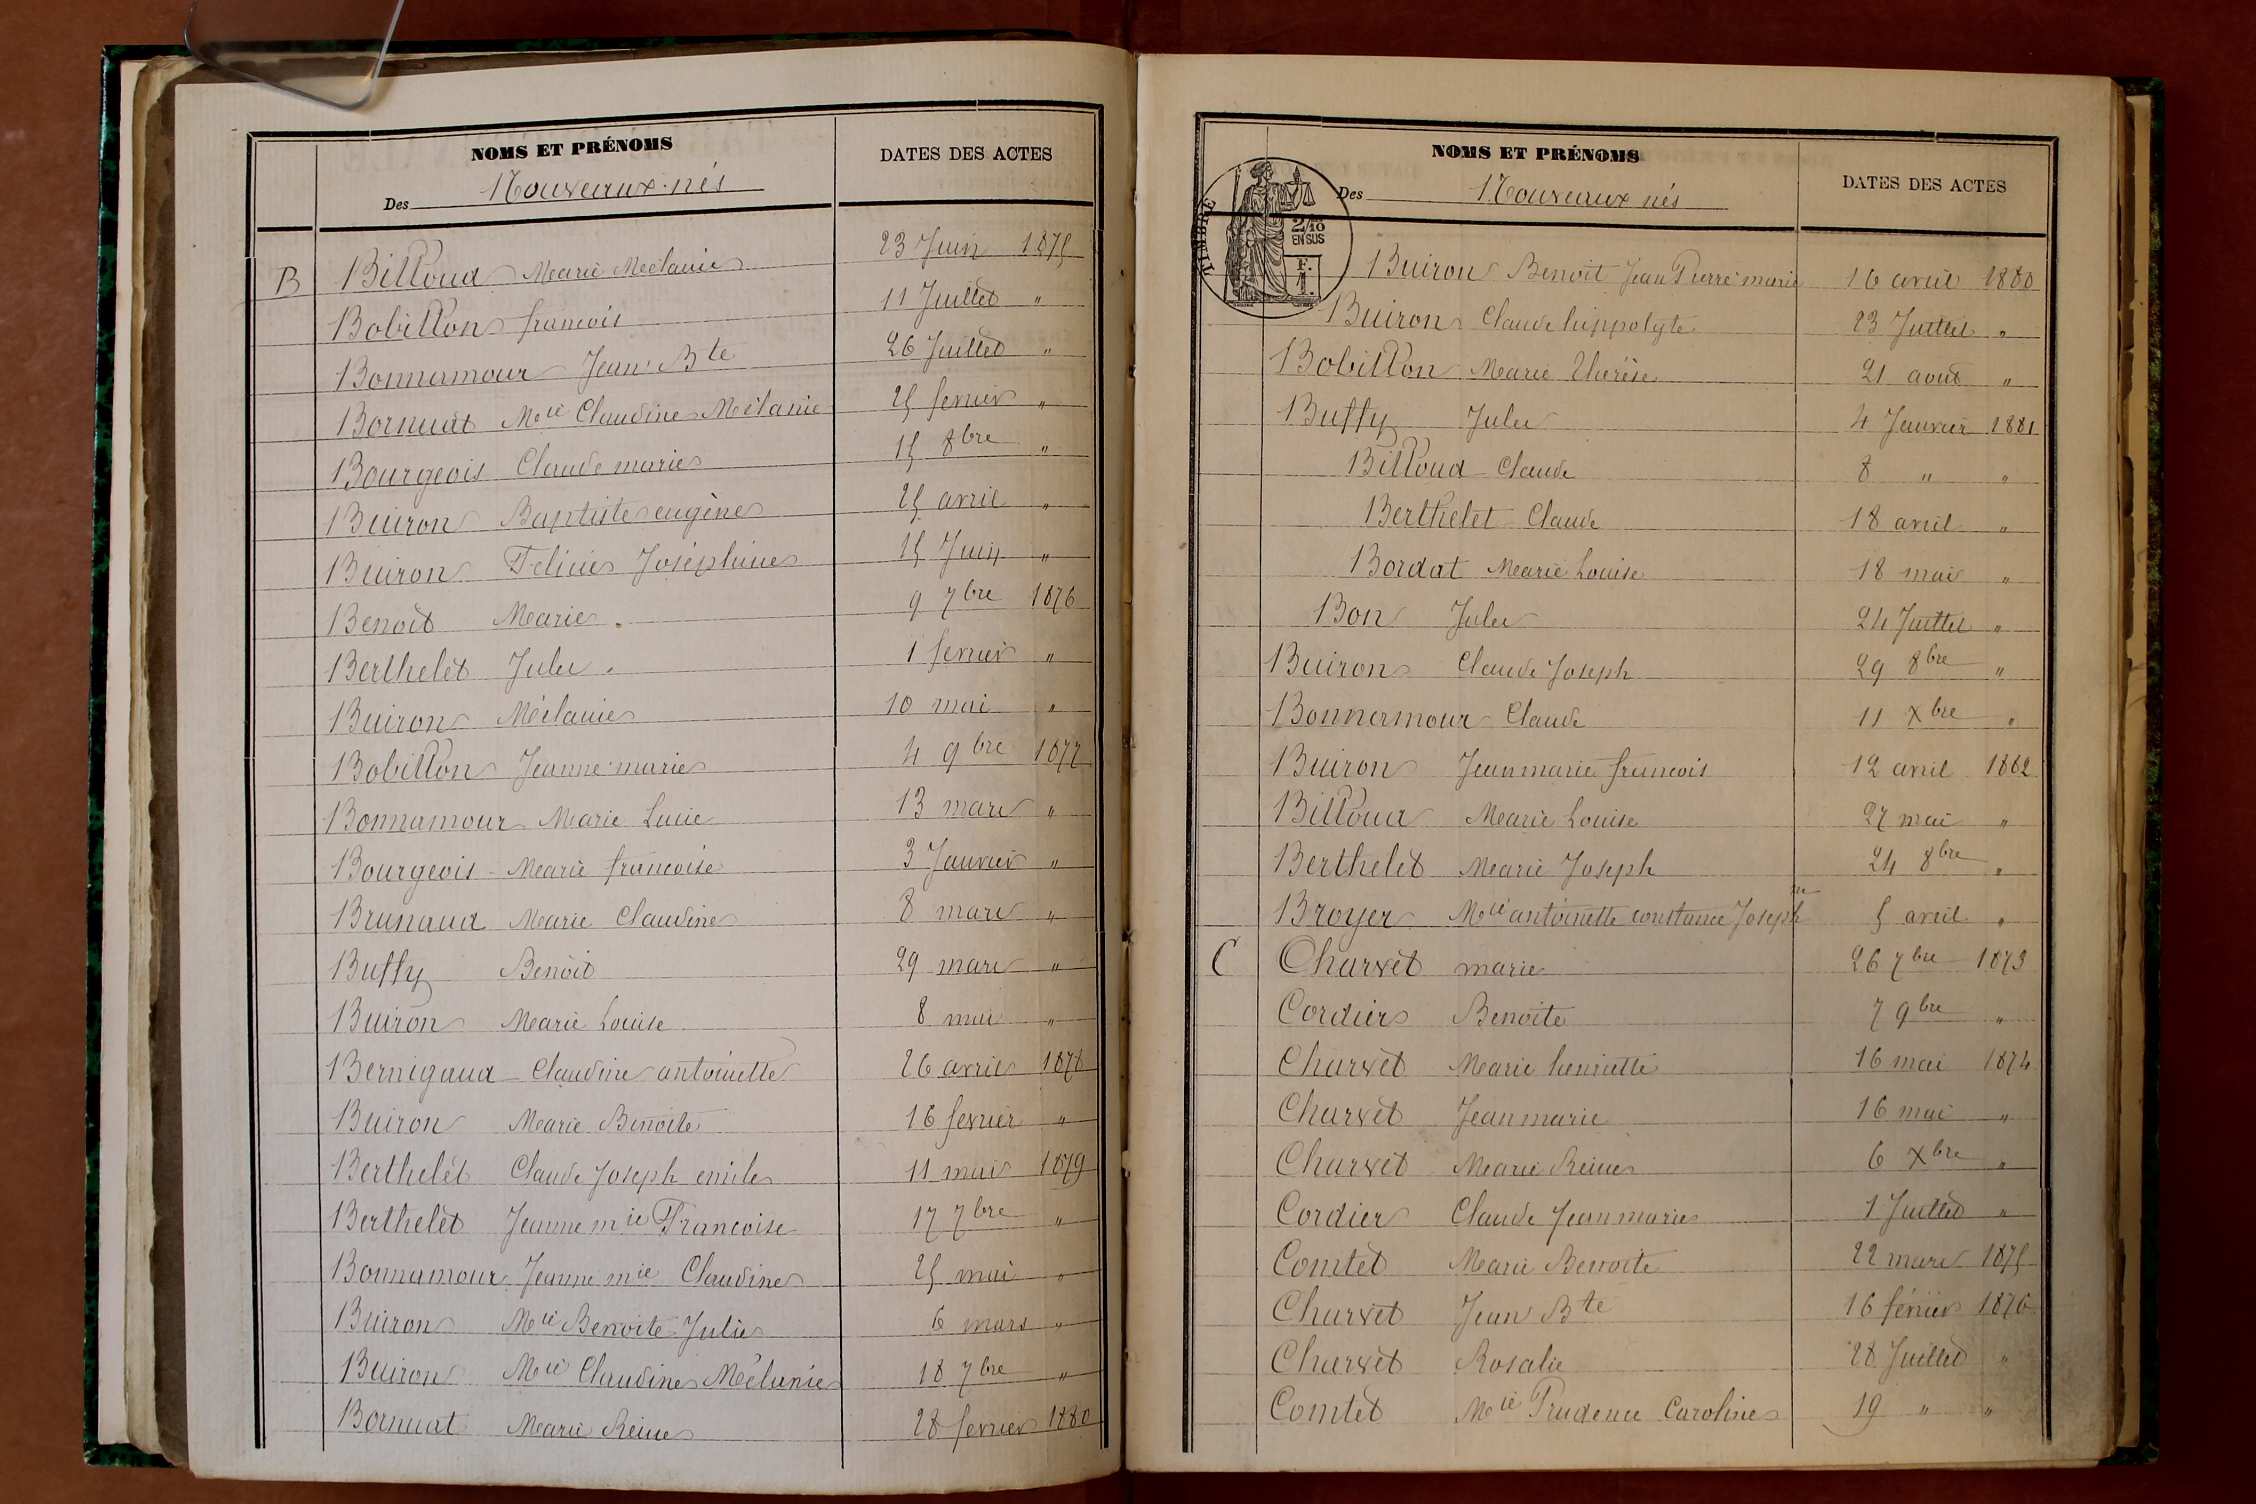 NOMS ET PRÉNOMS
DATES DES ACTES
Des Nouveaux-nés
B Billoud Marie Mélanie 23 Juin 1875
Bobillon francois 11 Juillet "
Bonnamour Jean Bte 26 Juillet "
Bornuat Mie Claudine Mélanie 25 fevrier "
Bourgeois Claude marie 15 8bre "
Buiron Baptiste eugène 25 avril "
Buiron Félicie Joséphine 15 Juin "
Benoit Marie 9 7bre 1876
Berthelet Jules 1 fevrier "
Buiron Mélanie 10 mai "
Bobillon Jeanne marie 4 9bre 1877
Bonnamour Marie Lucie 13 mars "
Bourgeois Marie francoise 3 Janvier "
Brunaud Marie Claudine 8 mars "
Buffy Benoit 29 mars "
Buiron Marie Louise 8 mai "
Bernigaud Claudine antoinette 26 avril 1878
Buiron Marie Benoite 16 fevrier "
Berthelet Claude Joseph emile 11 mai 1879
Berthelet Jeanne mie Francoise 17 7bre "
Bonnamour Jeanne mie Claudine 25 mai "
Buiron Mie Benoite Julie 6 mars "
Buiron Mie Claudine Mélanie 18 7bre "
Bornuat Marie Reine 28 fevrier 1880
NOMS ET PRÉNOMS
DATES DES ACTES
Des Nouveaux nés
TIMBRE
2/10
EN SUS
F.
1.
Buiron Benoit Jean Pierre marie 16 avril 1880
Buiron Claude hippolyte 23 Juillet "
Bobillon Marie Thérèse 21 août "
Buffy Jules 4 Janvier 1881
Billoud Claude 8 " "
Berthelet Claude 18 avril "
Bordat Marie Louise 18 mai "
Bon Jules 24 Juillet "
Buiron Claude Joseph 29 8bre "
Bonnamour Claude 11 Xbre "
Buiron Jean marie francois 12 avril 1882
Billoud Marie Louise 27 mai "
Berthelet Marie Joseph 24 8bre "
Broyer Mie antoinette constance Joseph ne 5 avril "
C Charvet marie 26 7bre 1873
Cordier Benoite 7 9bre "
Charvet Marie henriette 16 mai 1874
Charvet Jean marie 16 mai "
Charvet Marie Reine 6 Xbre "
Cordier Claude Jean marie 1 Juillet "
Comtet Marie Benoite 22 mars 1875
Charvet Jean Bte 16 février 1876
Charvet Rosalie 28 Juillet "
Comtet Mie Prudence Caroline 19 " "